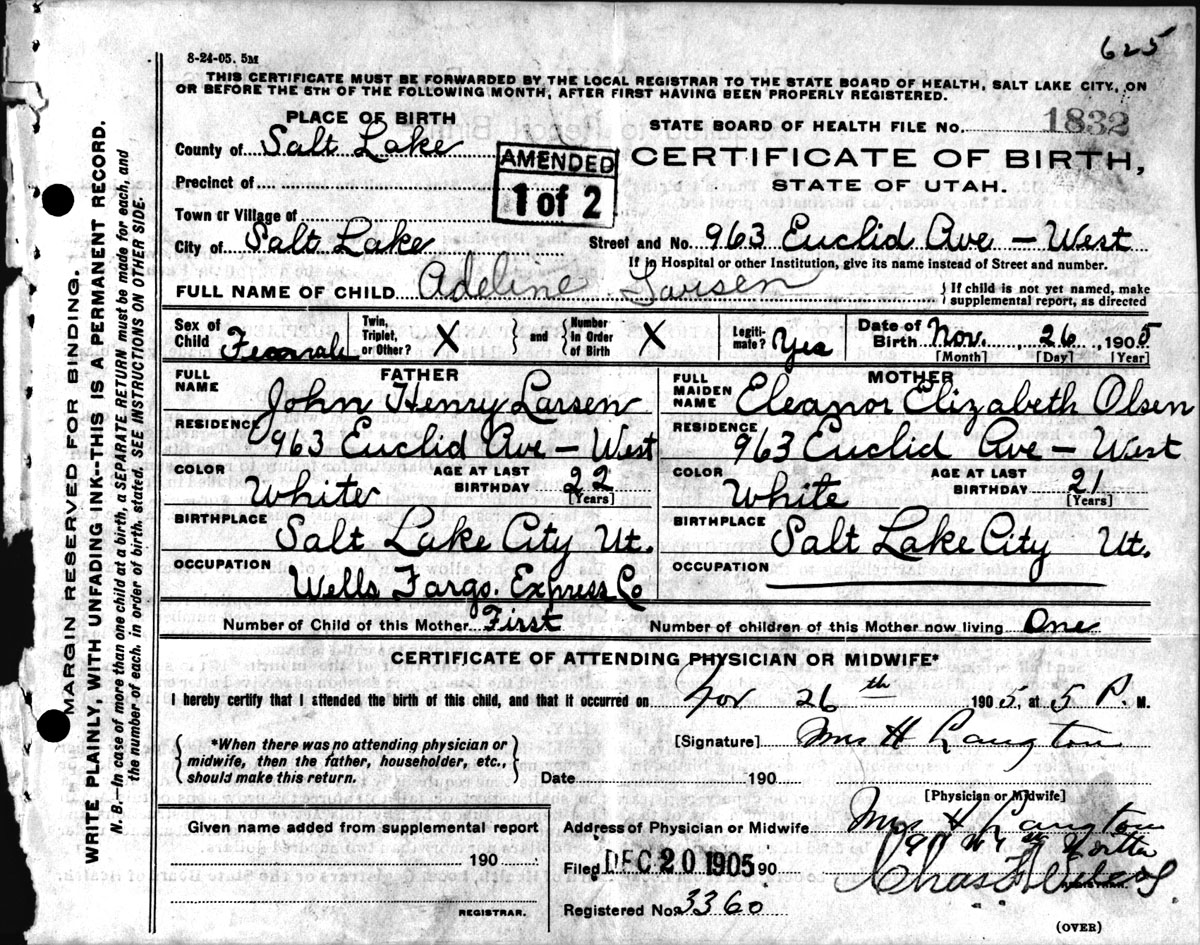 625
8-24-05. 5M
THIS CERTIFICATE MUST BE FORWARDED BY THE LOCAL REGISTRAR TO THE STATE BOARD OF HEALTH, SALT LAKE CITY, ON
OR BEFORE THE 5TH OF THE FOLLOWING MONTH, AFTER FIRST HAVING BEEN PROPERLY REGISTERED.
MARGIN RESERVED FOR BINDING.
WRITE PLAINLY, WITH UNFADING INK--THIS IS A PERMANENT RECORD.
N. B.—In case of more than one child at a birth, a SEPARATE RETURN must be made for each, and
the number of each, in order of birth, stated. SEE INSTRUCTIONS ON OTHER SIDE.
PLACE OF BIRTH
STATE BOARD OF HEALTH FILE No. 1832
County of Salt Lake
AMENDED
1 of 2
CERTIFICATE OF BIRTH,
Precinct of
STATE OF UTAH.
Town or Village of
City of Salt Lake Street and No. 963 Euclid Ave — West
If in Hospital or other Institution, give its name instead of Street and number.
FULL NAME OF CHILD Adeline Larsen { If child is not yet named, make
supplemental report, as directed
Sex of Child Female Twin, Triplet, or Other? X } and { Number in Order of Birth X Legitimate? Yes Date of Birth Nov. 26, 1905
[Month] [Day] [Year]
FATHER MOTHER
FULL NAME John Henry Larsen FULL MAIDEN NAME Eleanor Elizabeth Olsen
RESIDENCE 963 Euclid Ave — West RESIDENCE 963 Euclid Ave — West
COLOR White AGE AT LAST BIRTHDAY 22 [Years] COLOR White AGE AT LAST BIRTHDAY 21 [Years]
BIRTHPLACE Salt Lake City Ut. BIRTHPLACE Salt Lake City Ut.
OCCUPATION Wells Fargo. Express Co OCCUPATION
Number of Child of this Mother First Number of children of this Mother now living One
CERTIFICATE OF ATTENDING PHYSICIAN OR MIDWIFE*
I hereby certify that I attended the birth of this child, and that it occurred on Nov 26th 1905, at 5 P. M.
{ *When there was no attending physician or
midwife, then the father, householder, etc.,
should make this return. }
[Signature] Mrs H Langton
Date 190
[Physician or Midwife]
Given name added from supplemental report
190
REGISTRAR.
Address of Physician or Midwife Mrs H Langton
Filed DEC 20 1905 90
REGISTRAR.
Registered No. 3360
(OVER)